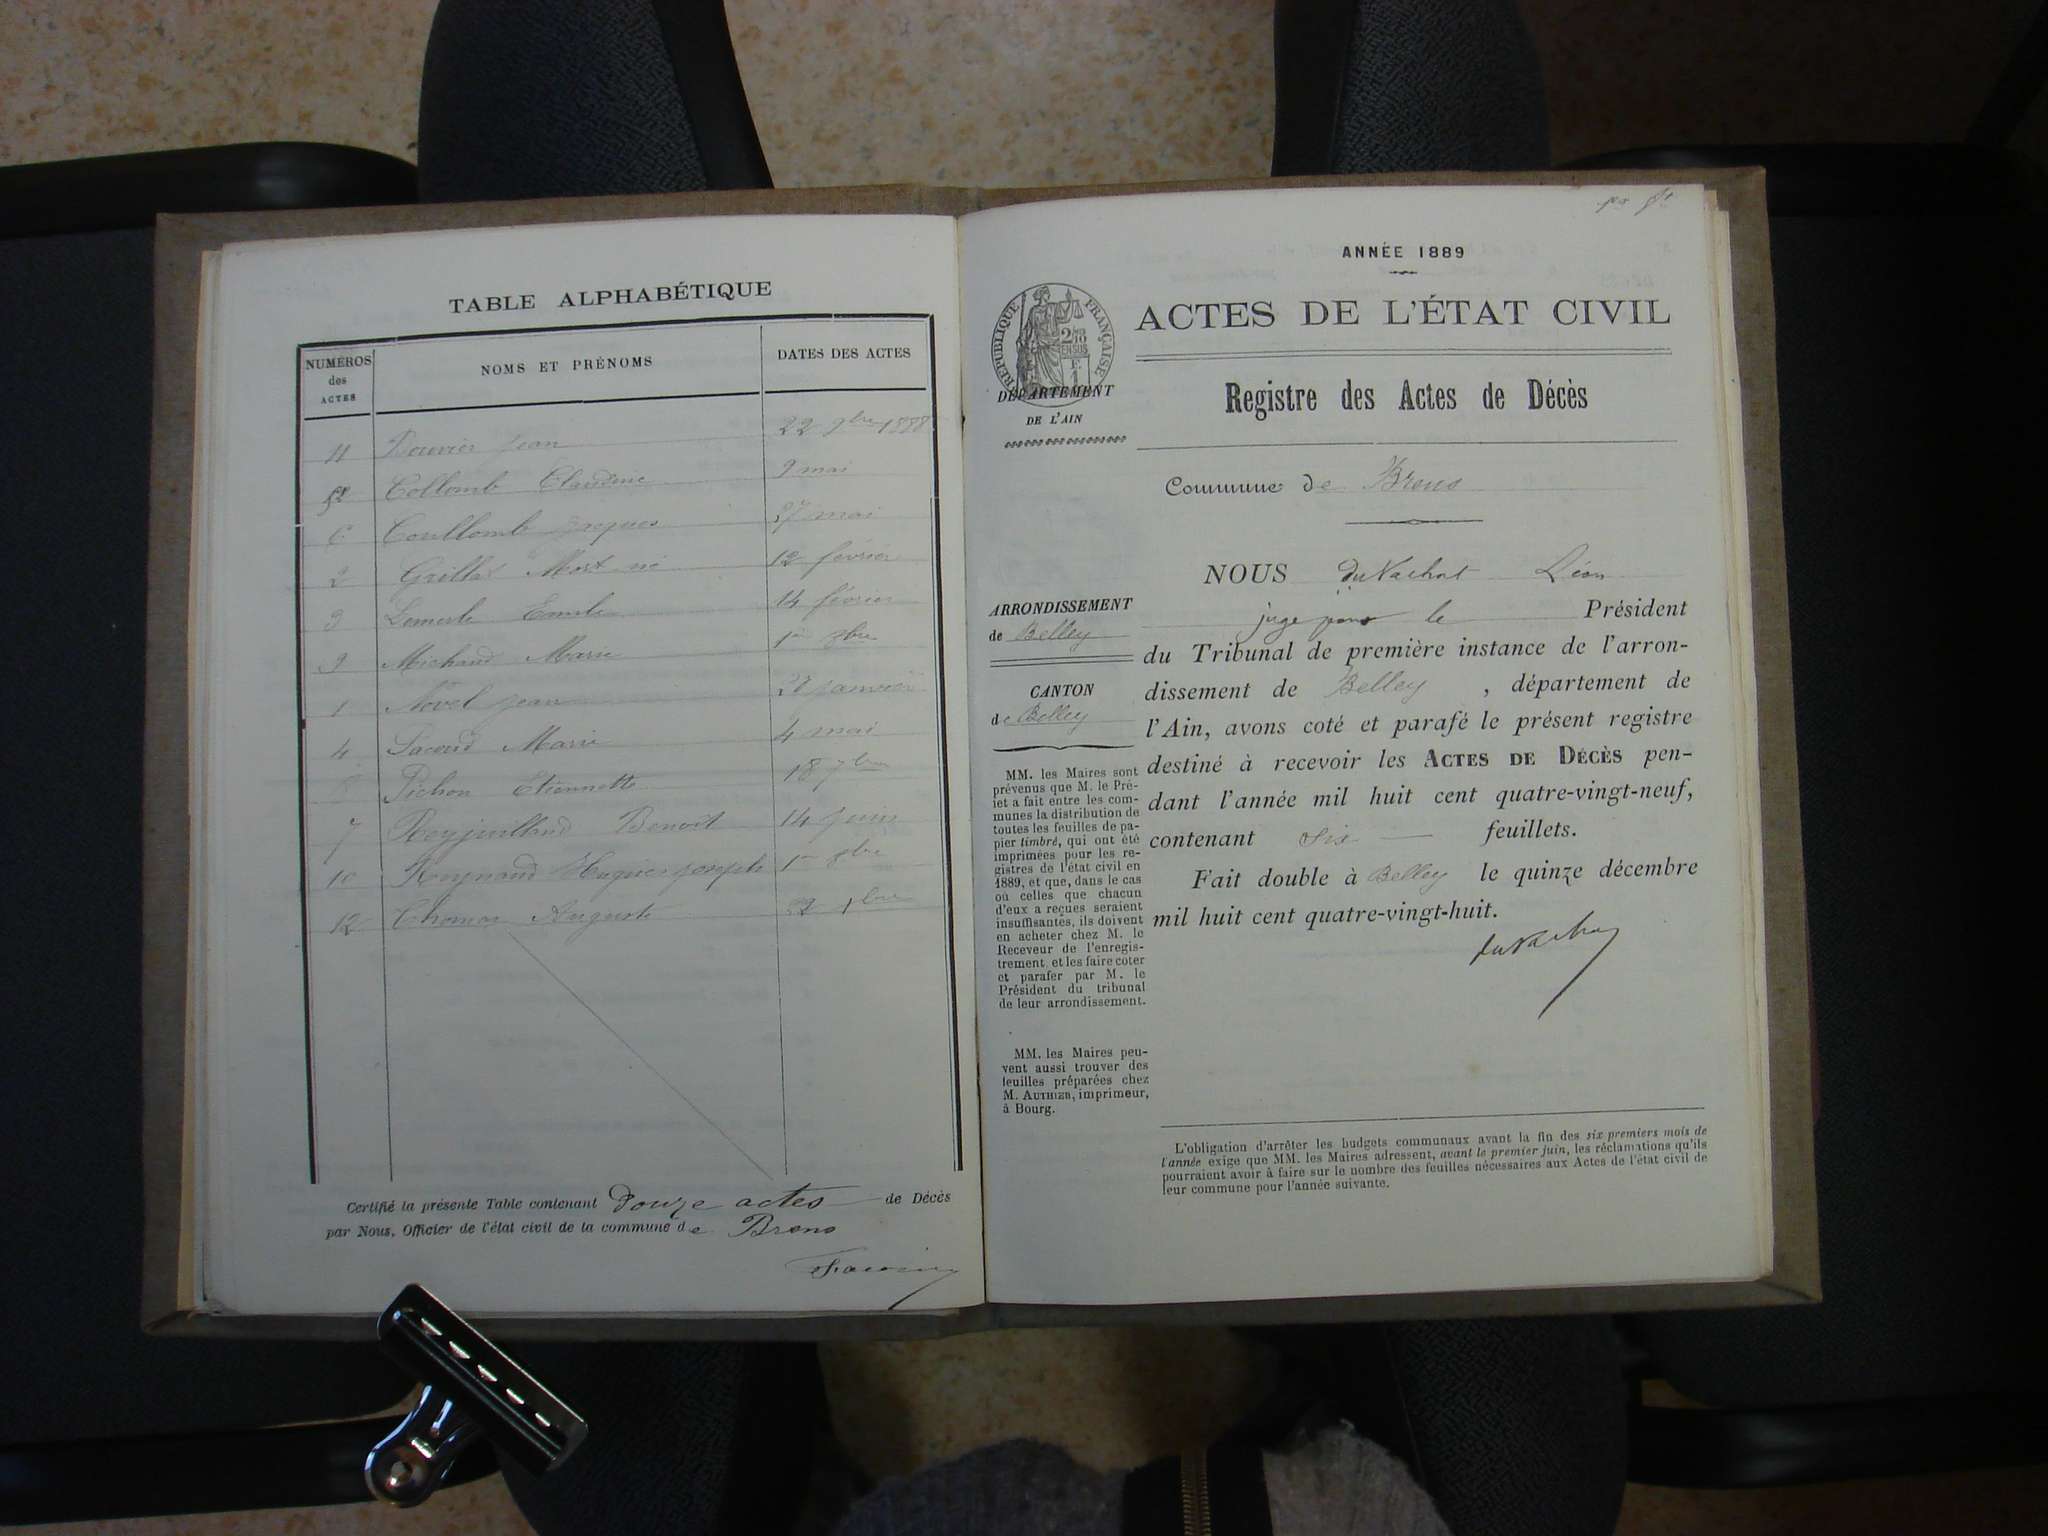 TABLE ALPHABÉTIQUE
NUMÉROS
des
ACTES
NOMS ET PRÉNOMS
DATES DES ACTES
11 Bouvier Jean 22 9bre 1888
Collomb Claudine 9 mai
6 Coullomb Jacques 27 mai
2 12 février
3 Lemerle Emile 14 février
9 Michaud Marie 1er 8bre
1 Novel Jean 28 janvier
4 Marie 4 mai
Pichon Etiennette 18 7bre
7 Benoît 14 juin
10 Reynaud Hugues joseph 1er 8bre
12 Thomas Auguste 22
Certifié la présente Table contenant douze actes de Décès
par Nous, Officier de l'état civil de la commune de Brens
ANNÉE 1889
RÉPUBLIQUE FRANÇAISE
ACTES DE L'ÉTAT CIVIL
DÉPARTEMENT
DE L'AIN
Registre des Actes de Décès
Commune de Brens
NOUS duVachat Léon
juge pour le Président
du Tribunal de première instance de l'arron-
dissement de Belley, département de
l'Ain, avons coté et parafé le présent registre
destiné à recevoir les ACTES DE DÉCÈS pen-
dant l'année mil huit cent quatre-vingt-neuf,
contenant six feuillets.
Fait double à Belley le quinze décembre
mil huit cent quatre-vingt-huit.
duVachat
ARRONDISSEMENT
de Belley
CANTON
de Belley
MM. les Maires sont
prévenus que M. le Pré-
fet a fait entre les com-
munes la distribution de
toutes les feuilles de pa-
pier timbré, qui ont été
imprimées pour les re-
gistres de l'état civil en
1889, et que, dans le cas
où celles que chacun
d'eux a reçues seraient
insuffisantes, ils doivent
en acheter chez M. le
Receveur de l'enregis-
trement et les faire coter
et parafer par M. le
Président du tribunal
de leur arrondissement.
MM. les Maires peu-
vent aussi trouver des
feuilles préparées chez
M. AUTHIER, imprimeur,
à Bourg.
L'obligation d'arrêter les budgets communaux avant la fin des six premiers mois de
l'année exige que MM. les Maires adressent, avant le premier juin, les réclamations qu'ils
pourraient avoir à faire sur le nombre des feuilles nécessaires aux Actes de l'état civil de
leur commune pour l'année suivante.